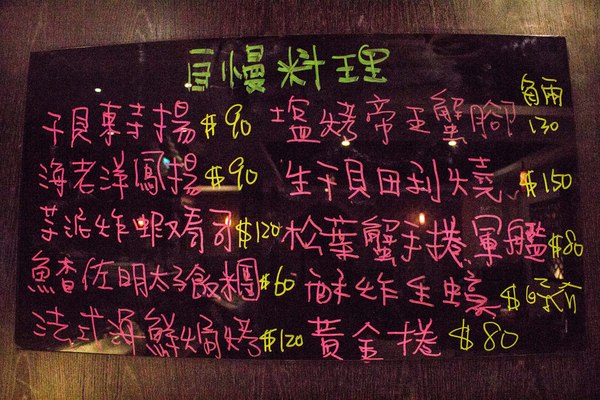 自慢料理
干貝東芋揚 $90
海老洋鳳揚 $90
菜派炸蝦壽司 $120
魚香佐明太子飯糰 $60
法式海鮮焗烤 $120
塩烤帝王蟹腳 每兩130
生干貝田利燒 $150
松葉蟹手捲軍艦 $80
酥炸生蠔 $時價
黃金捲 $80